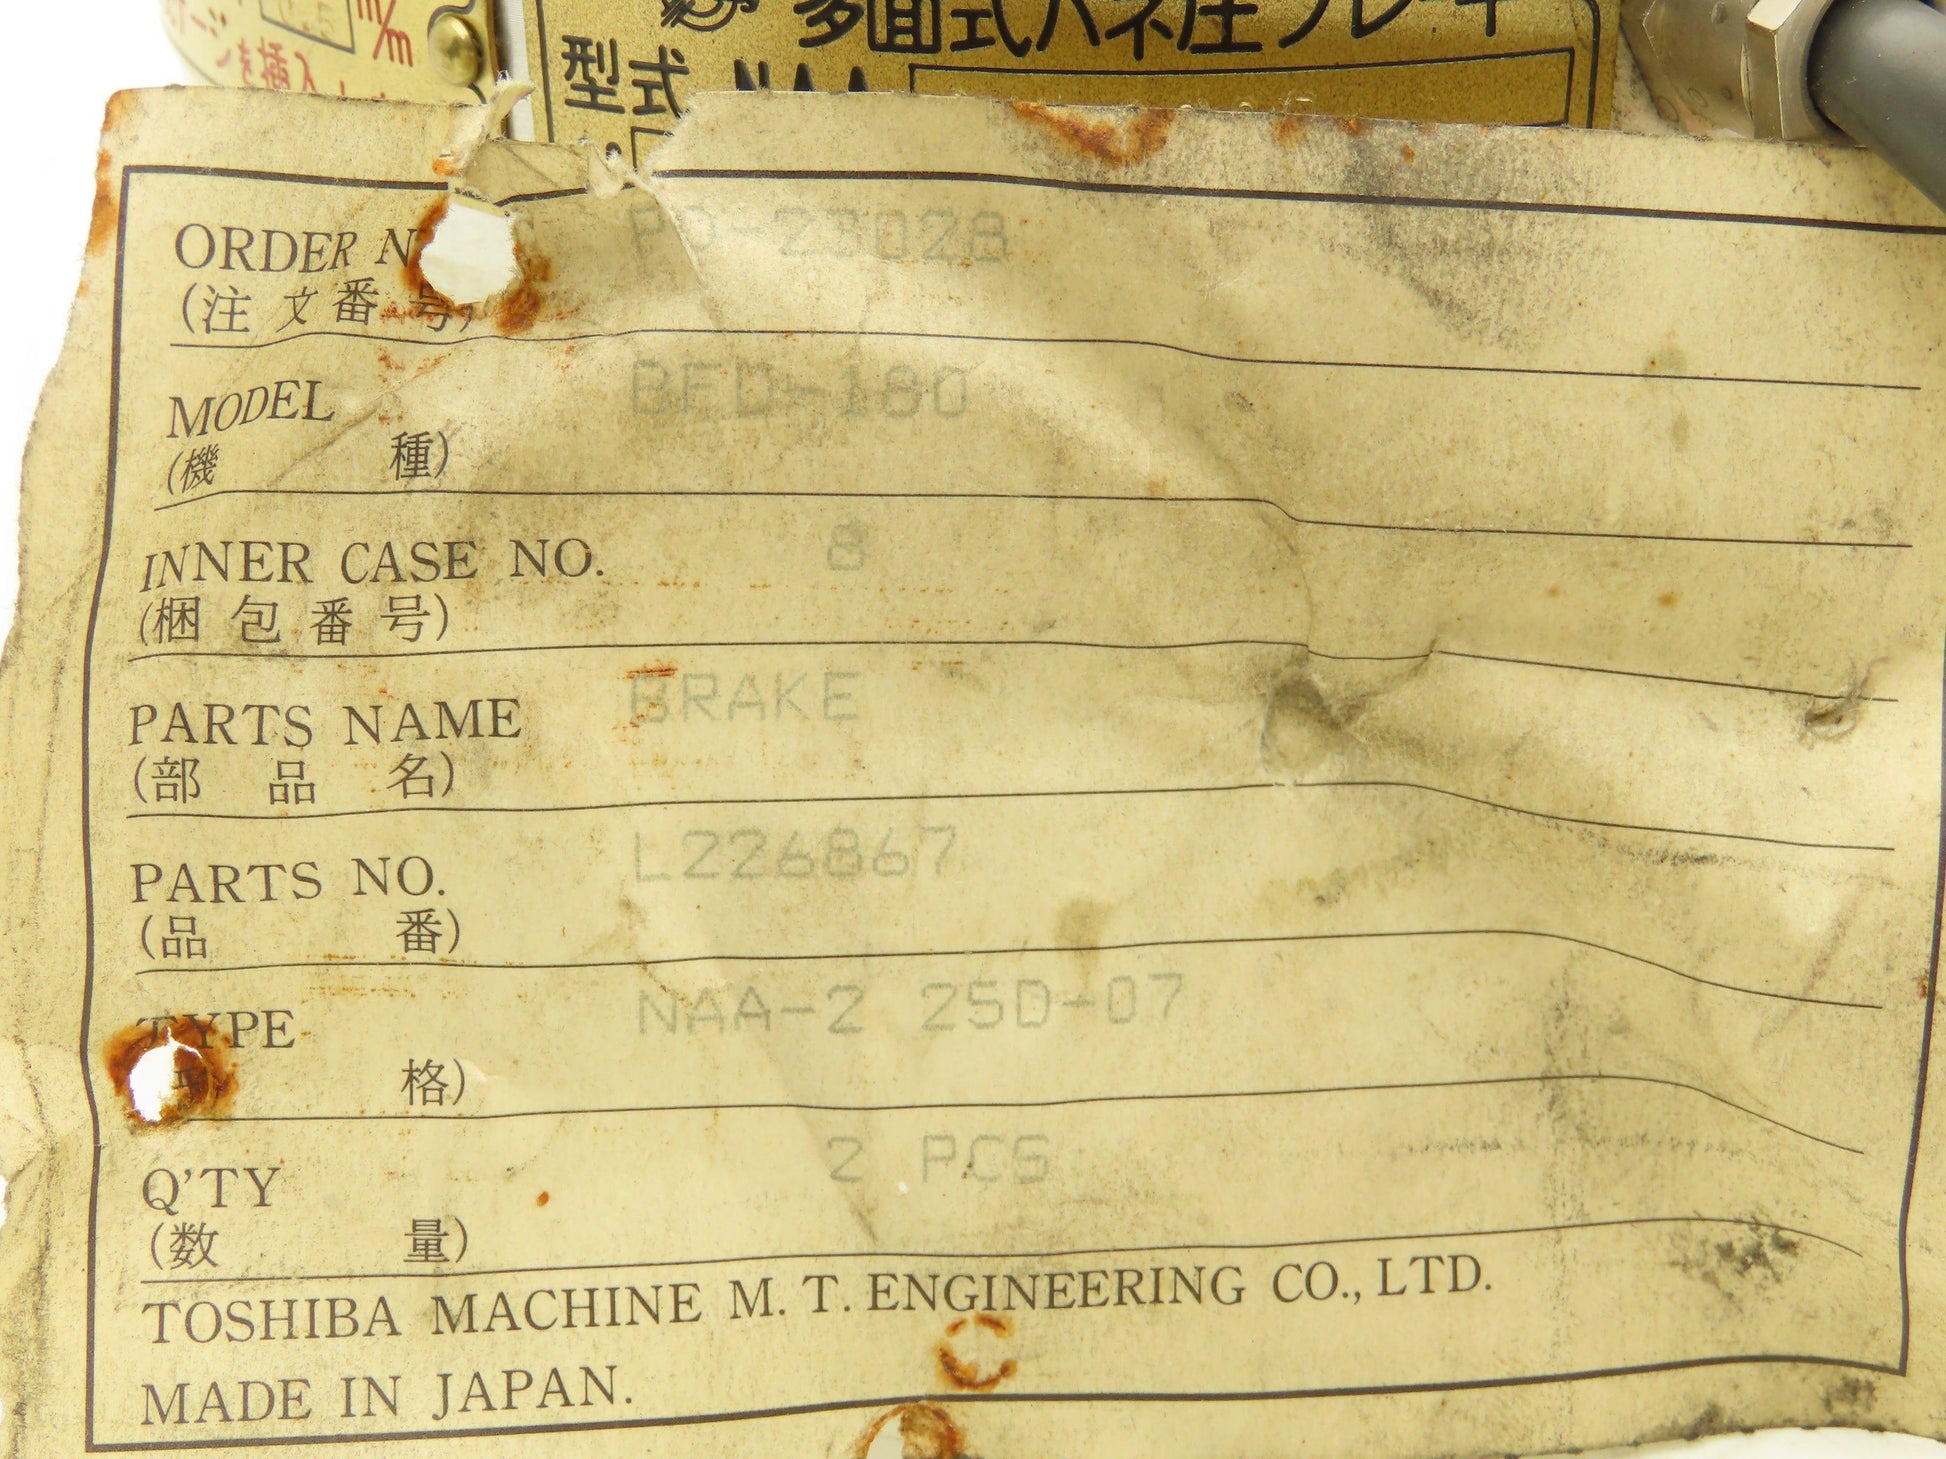 m/m
ゲージを挿入
多面式バネ圧ブレーキ
型式 NAA
ORDER N PO-23028
(注文番号)
MODEL BFD-180
(機種)
INNER CASE NO. 8
(梱包番号)
PARTS NAME BRAKE
(部品名)
PARTS NO. L226867
(品番)
TYPE NAA-2 25D-07
格)
Q'TY 2 PCS
(数量)
TOSHIBA MACHINE M. T. ENGINEERING CO., LTD.
MADE IN JAPAN.